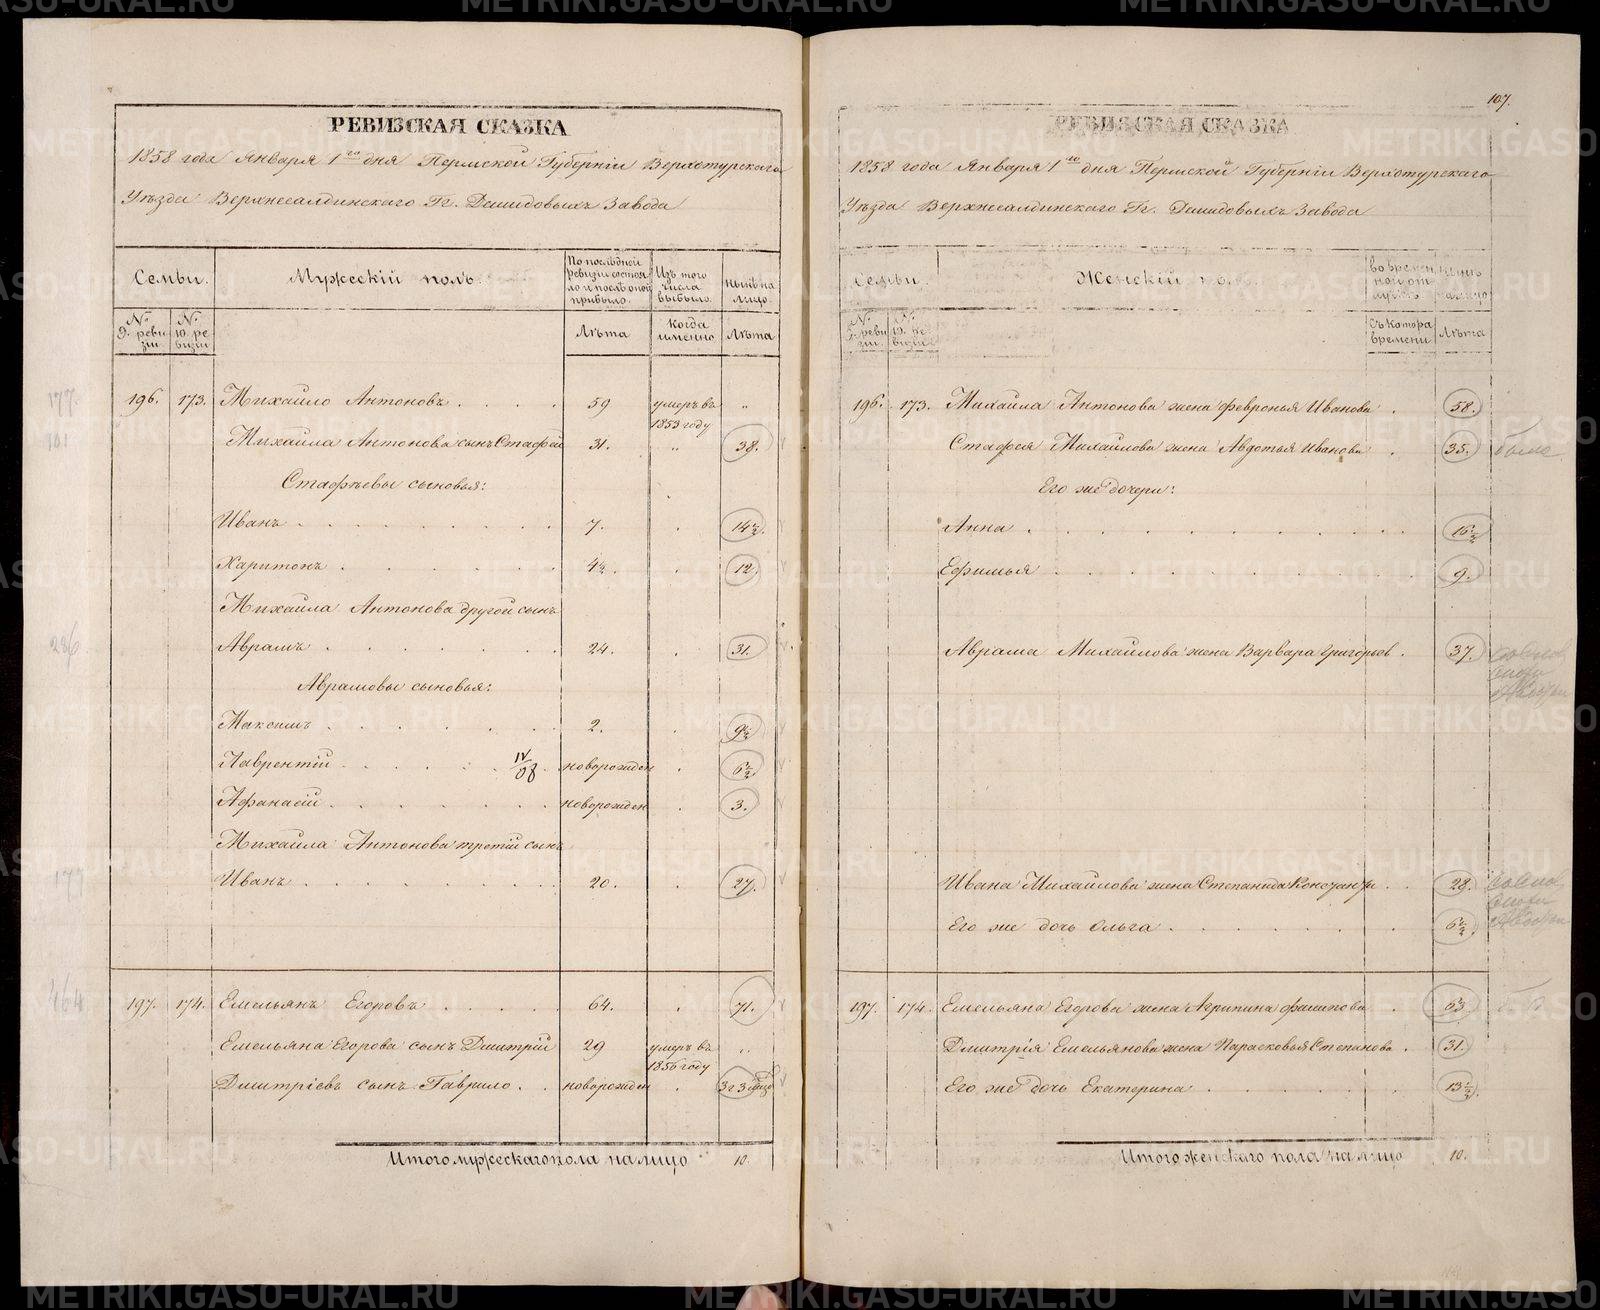 РЕВИЗСКАЯ СКАЗКА
1858 года Января 1го дня Пермской Губернiи Верхотурскаго
Уѣзда Верхнесалдинскаго Гг. Демидовыхъ Завода
Семьи.
Мужескiй полъ.
По послѣдней ревизiи состояло и послѣ оной прибыло.
Изъ того числа выбыло.
Нынѣ на лицо.
№ 9. ревизiи
№ 10. ревизiи
Лѣта
Когда именно
Лѣта
196. 173. Михайло Антоновъ 59 умеръ въ 1853 году „
Михайла Антонова сынъ Стафей 31. „ 38.
Стафѣевы сыновья:
Иванъ 7. 14½.
Харитонъ 4½. 12
Михайла Антонова другой сынъ
Аврамъ 24. 31.
Аврамовы сыновья:
Максимъ 2. 9½
Лаврентiй IV/08 новорожден 6½
Афанасiй новорожден 3.
Михайла Антонова третiй сынъ
Иванъ 20. 27.
197. 174. Емельянъ Егоровъ 64. 71.
Емельяна Егорова сынъ Дмитрiй 29 умеръ въ 1856 году „
Дмитрiевъ сынъ Гаврило новорожден
Итого мужескаго пола на лицо 10.
107.
РЕВИЗСКАЯ СКАЗКА
1858 года Января 1го дня Пермской Губернiи Верхотурскаго
Уѣзда Верхнесалдинскаго Гг. Демидовыхъ Завода
Семьи.
Женскiй полъ.
Во временной отлучкѣ
Нынѣ на лицо
№ 9. ревизiи
№ 10. ревизiи
Съ котора времени
Лѣта
196. 173. Михайла Антонова жена Февронья Иванова 58.
Стафея Михайлова жена Авдотья Иванова 35.
Его же дочери:
Анна 16½
Ефимья 9.
Аврама Михайлова жена Варвара Григорьев 37.
Ивана Михайлова жена Степанида 28.
Его же дочь Ольга 6½.
197. 174. Емельяна Егорова жена Агрипина 63
Дмитрiя Емельянова жена Парасковья Степанова 31.
Его же дочь Екатерина 13½.
Итого женскаго пола на лицо 10.
METRIKI.GASO-URAL.RU